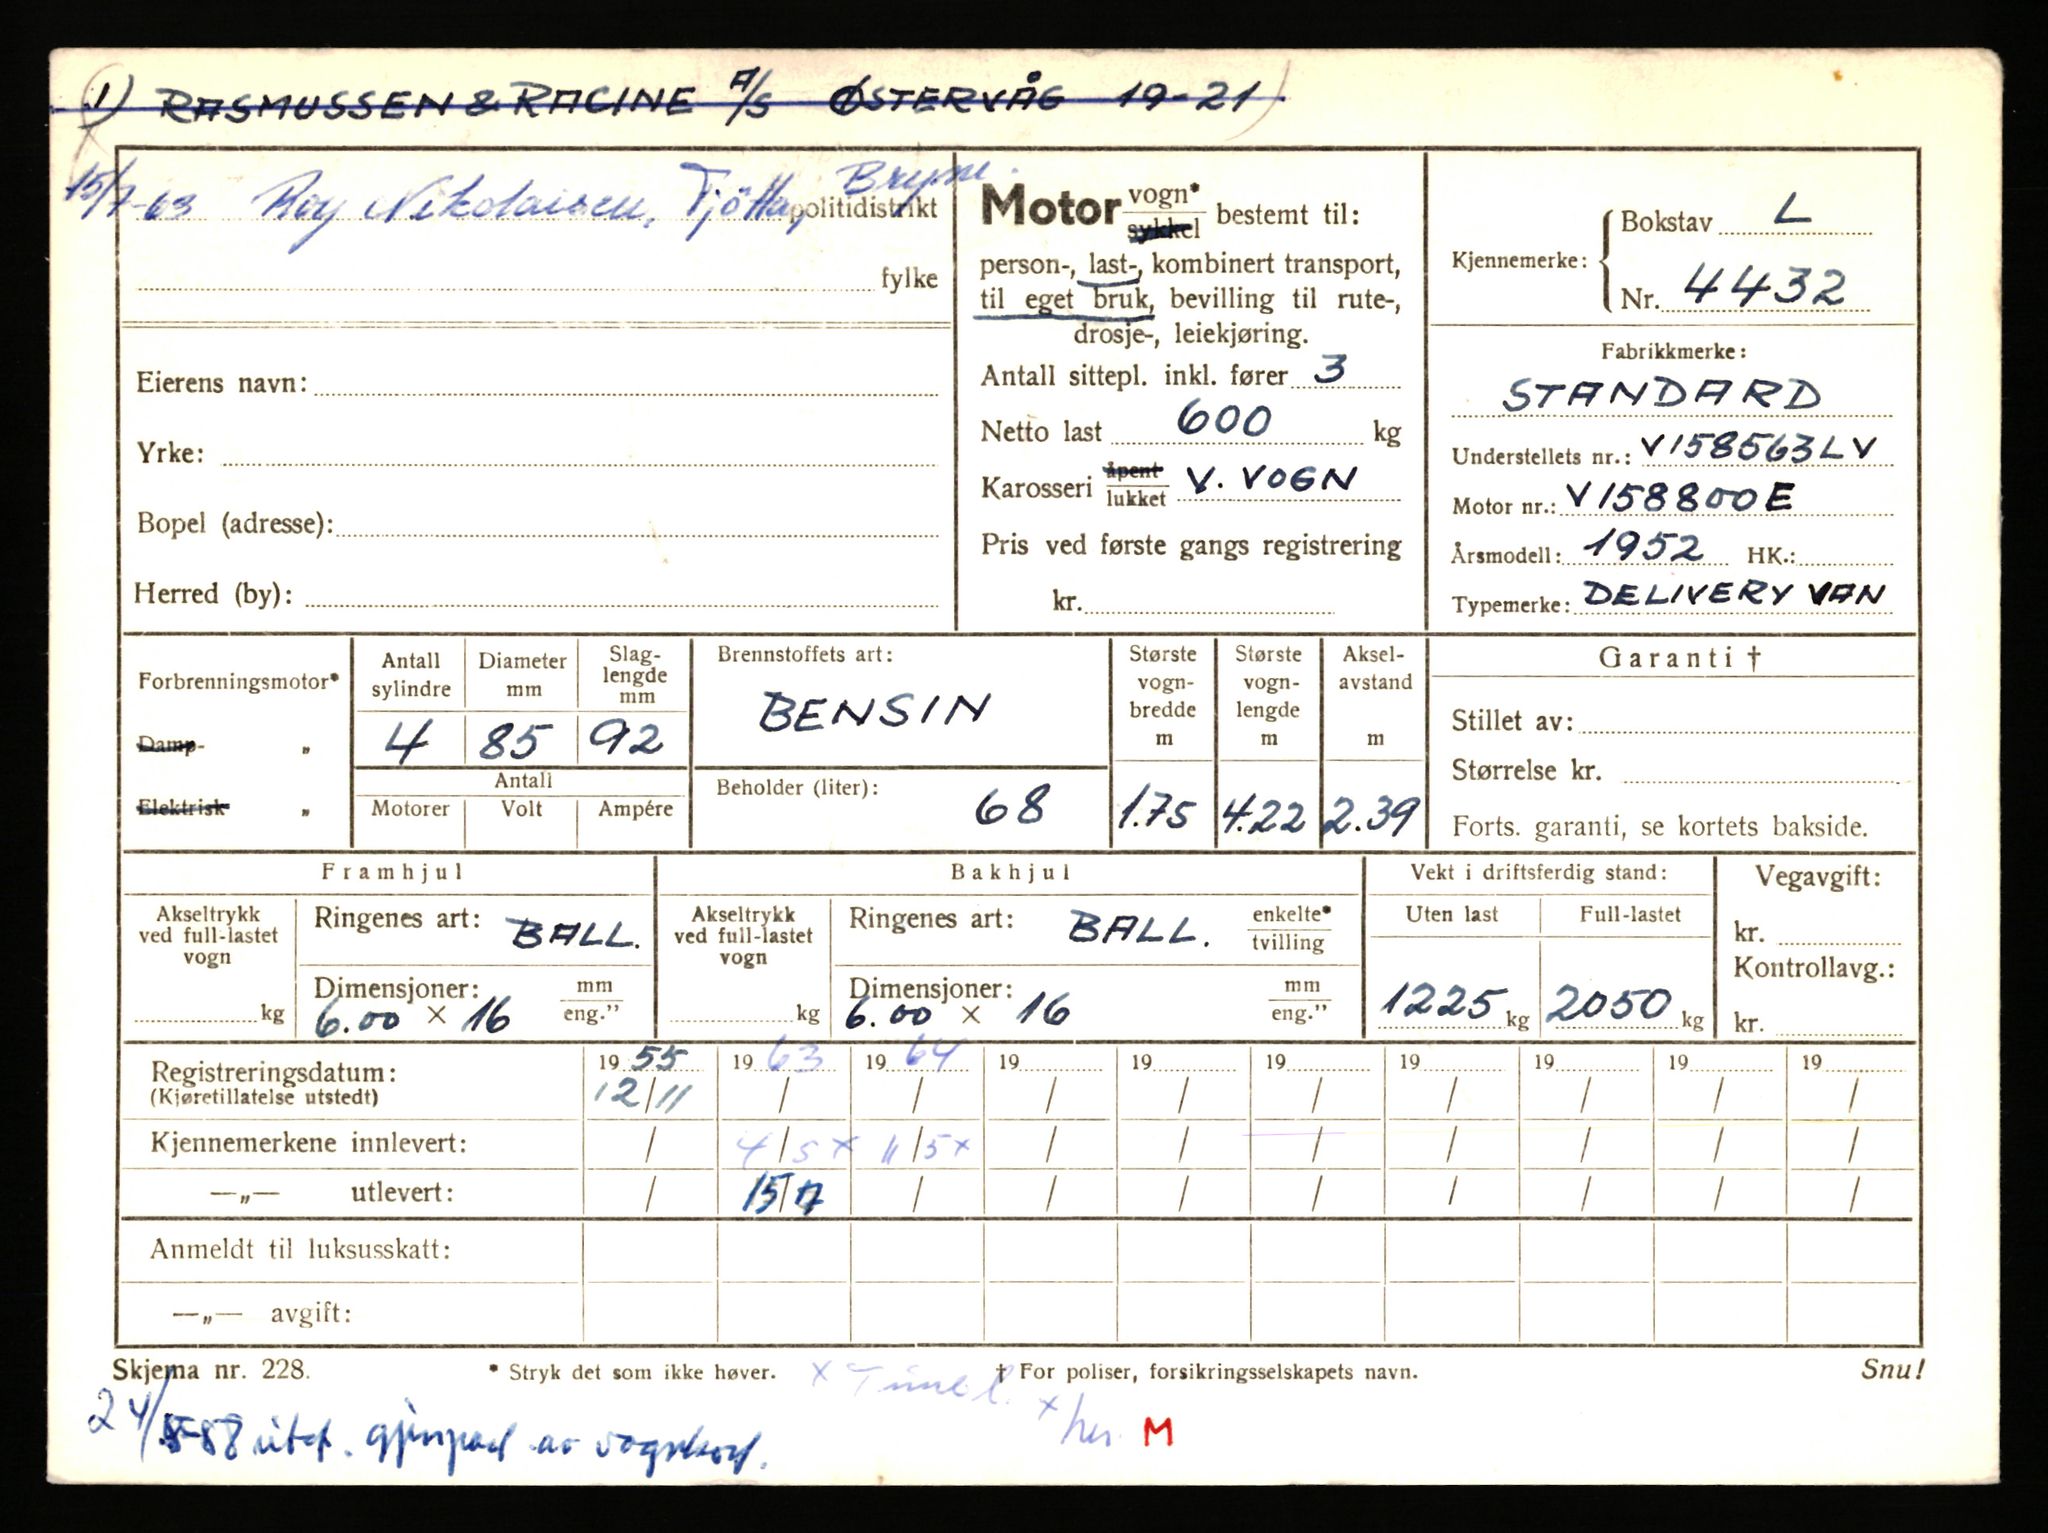 1) RASMUSSEN & RACINE A/S ØSTERVÅG 19-21
15/7-63 Roy Nikolaisen, Tjötta, Bryne. politidistrikt
fylke
Eierens navn:
Yrke:
Bopel (adresse):
Herred (by):
Motor vogn* sykkel bestemt til:
person-, last-, kombinert transport,
til eget bruk, bevilling til rute-,
drosje-, leiekjøring.
Antall sittepl. inkl. fører 3
Netto last 600 kg
Karosseri åpent lukket V. VOGN
Pris ved første gangs registrering
kr.
Kjennemerke: Bokstav L
Nr. 4432
Fabrikkmerke:
STANDARD
Understellets nr.: V158563LV
Motor nr.: V158800E
Årsmodell: 1952 HK.:
Typemerke: DELIVERY VAN
Forbrenningsmotor*
Damp- „
Elektrisk „
Antall sylindre
4
Diameter mm
85
Slag-lengde mm
92
Antall
Motorer Volt Ampére
Brennstoffets art:
BENSIN
Beholder (liter):
68
Største vogn-bredde m
1.75
Største vogn-lengde m
4.22
Aksel-avstand m
2.39
Garanti †
Stillet av:
Størrelse kr.
Forts. garanti, se kortets bakside.
Framhjul
Akseltrykk ved full-lastet vogn
kg
Ringenes art: BALL.
Dimensjoner: mm eng."
6.00 × 16
Bakhjul
Akseltrykk ved full-lastet vogn
kg
Ringenes art: BALL. enkelte* tvilling
Dimensjoner: mm eng."
6.00 × 16
Vekt i driftsferdig stand:
Uten last Full-lastet
1225 kg 2050 kg
Vegavgift:
kr.
Kontrollavg.:
kr.
Registreringsdatum: 19 55 19 63 19 64 19 19 19 19 19 19 19
(Kjøretillatelse utstedt) 12/11 / / / / / / / / /
Kjennemerkene innlevert: / 4/5 x 11/5 x / / / / / / /
—„— utlevert: / 15/7 / / / / / / / /
Anmeldt til luksusskatt:
—„— avgift:
Skjema nr. 228. * Stryk det som ikke høver. † For poliser, forsikringsselskapets navn. Snu!
x
x her M
24/5-88 utst. gjenpart av vognkort.